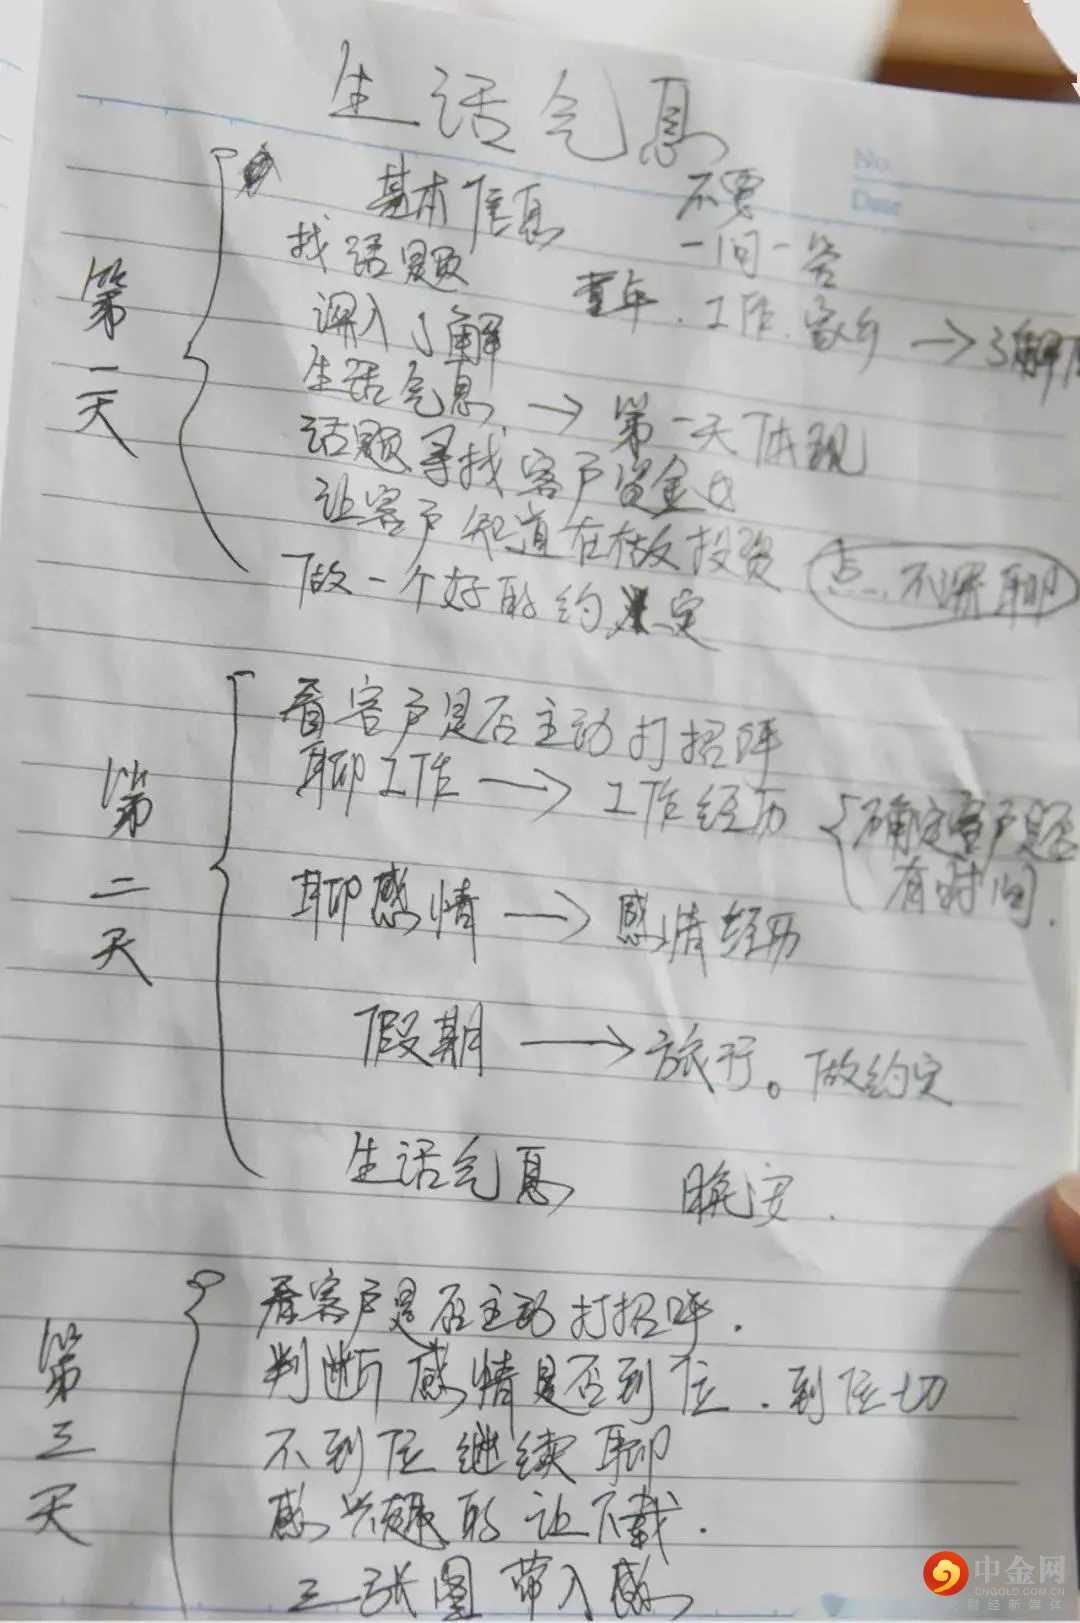 生话气息
No.
Date
基本信息 不要
找话题 一问一答
深入了解 童年、工作、家乡 → 了解
生话气息 → 第一天体现
第一天
话题寻找客户资金
让客户知道在做投资
点... 不深聊
做一个好的约定
看客户是否主动打招呼
聊工作 → 工作经历 确定客户是否
有时间.
第二天
聊感情 → 感情经历
假期 → 旅行。做约定
生话气息 晚安.
看客户是否主动打招呼.
判断感情是否到位.到位切
第三天
不到位继续聊
感兴趣的让下载.
三张图带入感
中金网
CNGOLD.COM.CN
财经新媒体